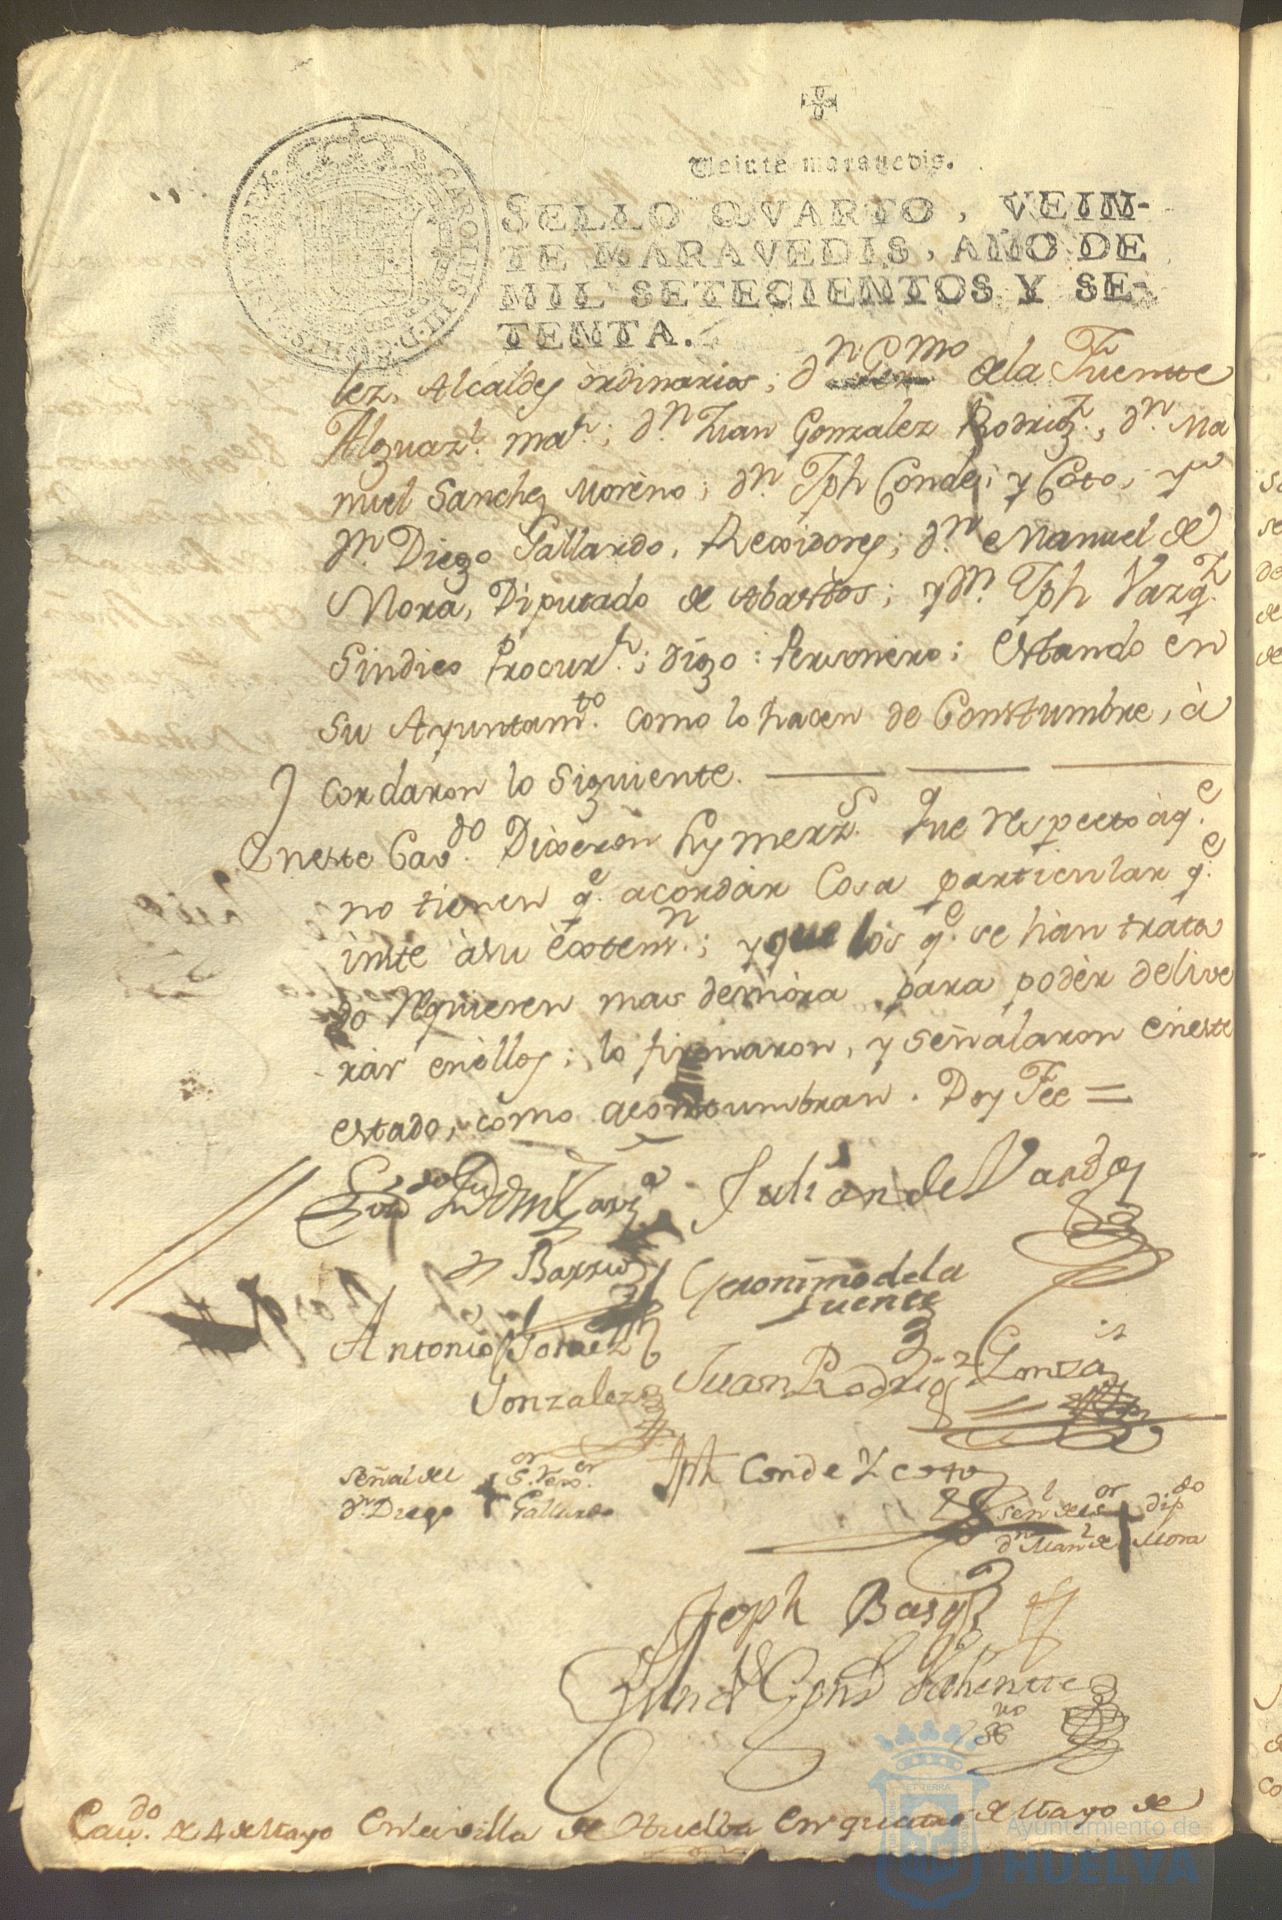 Veinte maravedis.
SELLO QVARTO, VEIN-
TE MARAVEDIS, AÑO DE
MIL SETECIENTOS Y SE-
TENTA.
CAROLUS III D G HISPANIAR REX
lez, Alcaldes ordinarios; dn Germo dela Fuentte
Alguazl. mar.; dn. Juan Gonzalez Rodrigz., dn. Ma
nuel Sanchez Moreno; dn. Jph Conde, y Coto, y
dn. Diego Gallardo, Rexidores; dn. Manuel de
Mora, Diputado de Abastos; y dn. Jph Vazqz.
Sindico Procurr.; digo: Personero; estando en
su Ayuntamto. como lo hacen de Constumbre, à
cordaron lo Siguiente.
En este Cavdo. Dixeron sus merzs. que respecto àqe.
no tienen qe. acordar Cosa particular qe.
inste àsu exotenn.; y que los qe. se hàn trata
do requieren mas demora para podèr delive
rar en ellos; lo firmaron, y señalaron en este
estado, como acontumbran. Doy Fee =
Julian de
Barrio
Geronimo de la
Fuente
Antonio
Gonzalez
Juan Rodrigz Gonza
Señal del + Sor. Rexor.
dn. Diego Gallardo
Jph Conde y coto
Señl del Sor + dipdo
dn Manl de Mora
Joseph Basqz
Cavdo. de 4 de Mayo En la villa de Huelba En quatro de Mayo de
Ayuntamiento de
HUELVA